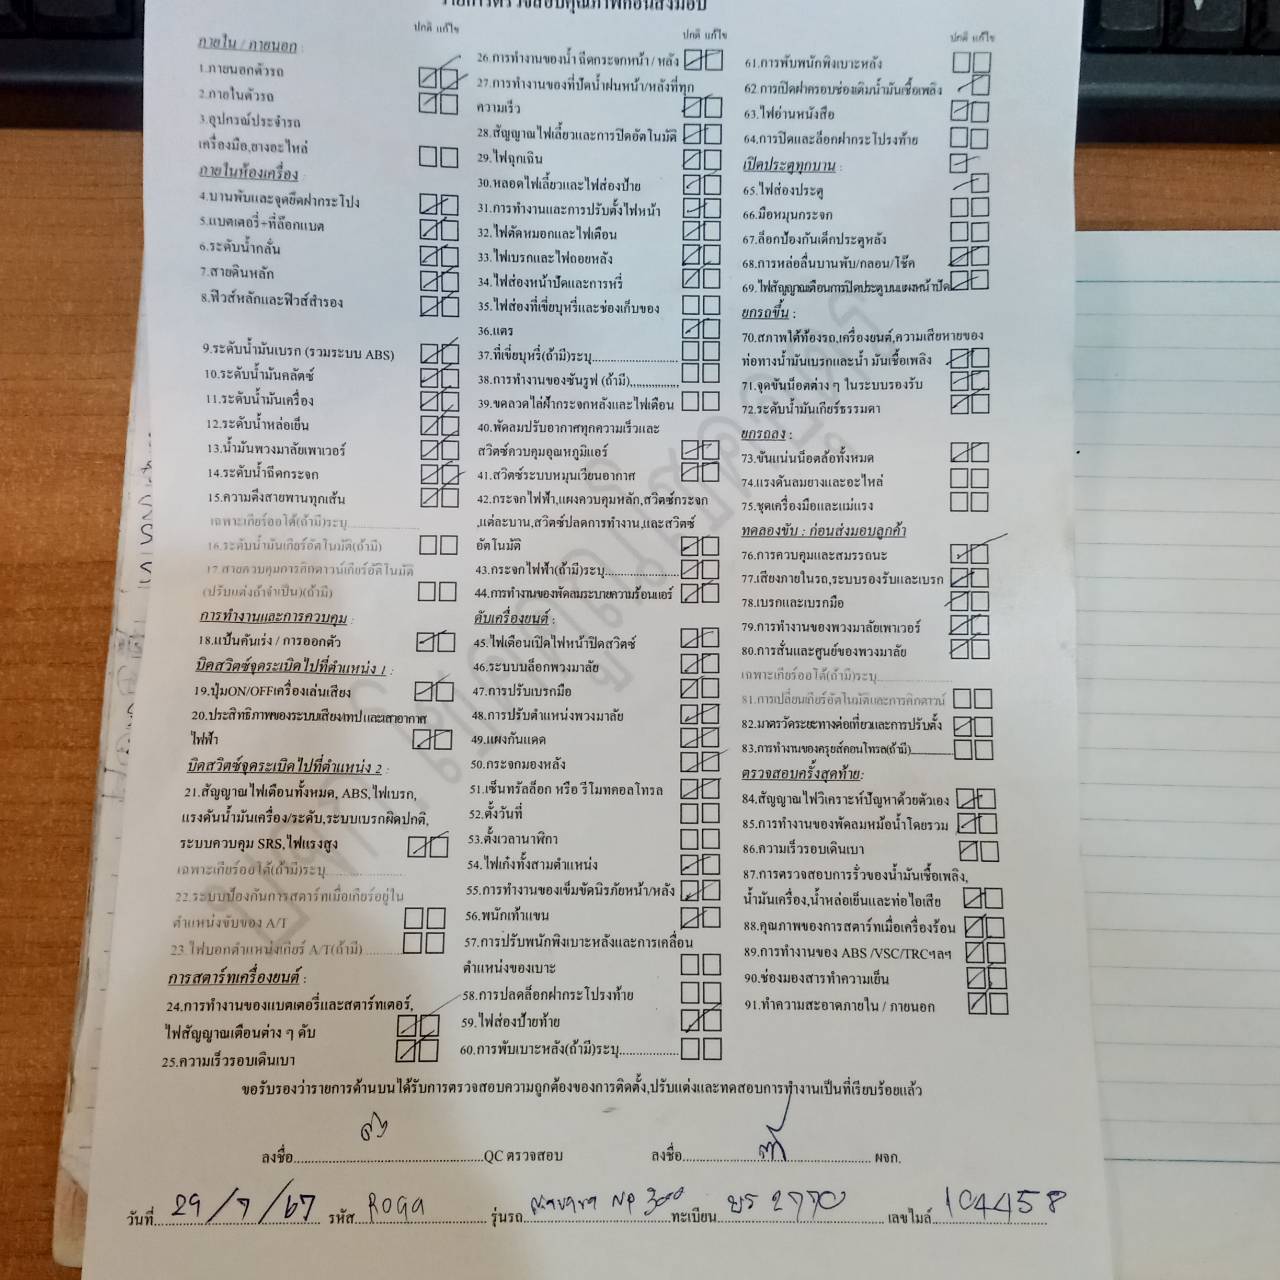 รายการตรวจสอบคุณภาพก่อนส่งมอบ
ปกติ แก้ไข
ภายใน / ภายนอก :
1.ภายนอกตัวรถ
2.ภายในตัวรถ
3.อุปกรณ์ประจำรถ
เครื่องมือ,ยางอะไหล่
ภายในห้องเครื่อง :
4.บานพับและจุดยึดฝากระโปรง
5.แบตเตอรี่+ที่ล๊อกแบต
6.ระดับน้ำกลั่น
7.สายดินหลัก
8.ฟิวส์หลักและฟิวส์สำรอง
9.ระดับน้ำมันเบรก (รวมระบบ ABS)
10.ระดับน้ำมันคลัตช์
11.ระดับน้ำมันเครื่อง
12.ระดับน้ำหล่อเย็น
13.น้ำมันพวงมาลัยเพาเวอร์
14.ระดับน้ำฉีดกระจก
15.ความตึงสายพานทุกเส้น
เฉพาะเกียร์ออโต้(ถ้ามี)ระบุ
16.ระดับน้ำมันเกียร์อัตโนมัติ(ถ้ามี)
17.สายควบคุมการคิกดาวน์เกียร์อัติโนมัติ
(ปรับแต่งถ้าจำเป็น)(ถ้ามี)
การทำงานและการควบคุม :
18.แป้นคันเร่ง / การออกตัว
บิดสวิตซ์จุดระเบิดไปที่ตำแหน่ง 1 :
19.ปุ่มON/OFFเครื่องเล่นเสียง
20.ประสิทธิภาพของระบบเสียง/เทป และเสาอากาศ
ไฟฟ้า
บิดสวิตซ์จุดระเบิดไปที่ตำแหน่ง 2 :
21.สัญญาณไฟเตือนทั้งหมด, ABS,ไฟเบรก,
แรงดันน้ำมันเครื่อง/ระดับ,ระบบเบรกผิดปกติ,
ระบบควบคุม SRS,ไฟแรงสูง
เฉพาะเกียร์ออโต้(ถ้ามี)ระบุ
22.ระบบป้องกันการสตาร์ทเมื่อเกียร์อยู่ใน
ตำแหน่งขับของ A/T
23.ไฟบอกตำแหน่งเกียร์ A/T(ถ้ามี)
การสตาร์ทเครื่องยนต์ :
24.การทำงานของแบตเตอรี่และสตาร์ทเตอร์,
ไฟสัญญาณเตือนต่าง ๆ ดับ
25.ความเร็วรอบเดินเบา
ปกติ แก้ไข
26.การทำงานของน้ำ ฉีดกระจกหน้า / หลัง
27.การทำงานของที่ปัดน้ำฝนหน้า/หลังที่ทุก
ความเร็ว
28.สัญญาณไฟเลี้ยวและการปิดอัตโนมัติ
29.ไฟฉุกเฉิน
30.หลอดไฟเลี้ยวและไฟส่องป้าย
31.การทำงานและการปรับตั้งไฟหน้า
32.ไฟตัดหมอกและไฟเตือน
33.ไฟเบรกและไฟถอยหลัง
34.ไฟส่องหน้าปัดและการหรี่
35.ไฟส่องที่เขี่ยบุหรี่และช่องเก็บของ
36.แตร
37.ที่เขี่ยบุหรี่(ถ้ามี)ระบุ
38.การทำงานของซันรูฟ (ถ้ามี)
39.ขดลวดไล่ฝ้ากระจกหลังและไฟเตือน
40.พัดลมปรับอากาศทุกความเร็วและ
สวิตซ์ควบคุมอุณหภูมิแอร์
41.สวิตซ์ระบบหมุนเวียนอากาศ
42.กระจกไฟฟ้า,แผงควบคุมหลัก,สวิตซ์กระจก
,แต่ละบาน,สวิตซ์ปลดการทำงาน,และสวิตซ์
อัตโนมัติ
43.กระจกไฟฟ้า(ถ้ามี)ระบุ
44.การทำงานของพัดลมระบายความร้อนแอร์
ดับเครื่องยนต์ :
45.ไฟเตือนเปิดไฟหน้าปิดสวิตซ์
46.ระบบบล็อกพวงมาลัย
47.การปรับเบรกมือ
48.การปรับตำแหน่งพวงมาลัย
49.แผงกันแดด
50.กระจกมองหลัง
51.เซ็นทรัลล็อก หรือ รีโมทคอลโทรล
52.ตั้งวันที่
53.ตั้งเวลานาฬิกา
54.ไฟเก๋งทั้งสามตำแหน่ง
55.การทำงานของเข็มขัดนิรภัยหน้า/หลัง
56.พนักเท้าแขน
57.การปรับพนักพิงเบาะหลังและการเคลื่อน
ตำแหน่งของเบาะ
58.การปลดล็อกฝากระโปรงท้าย
59.ไฟส่องป้ายท้าย
60.การพับเบาะหลัง(ถ้ามี)ระบุ
ปกติ แก้ไข
61.การพับพนักพิงเบาะหลัง
62.การเปิดฝาครอบช่องเติมน้ำมันเชื้อเพลิง
63.ไฟอ่านหนังสือ
64.การปิดและล็อกฝากระโปรงท้าย
เปิดประตูทุกบาน :
65.ไฟส่องประตู
66.มือหมุนกระจก
67.ล็อกป้องกันเด็กประตูหลัง
68.การหล่อลื่นบานพับ/กลอน/โช๊ค
69.ไฟสัญญาณเตือนการปิดประตูบนแผงหน้าปัด
ยกรถขึ้น :
70.สภาพใต้ท้องรถ,เครื่องยนต์,ความเสียหายของ
ท่อทางน้ำมันเบรกและน้ำ มันเชื้อเพลิง
71.จุดขันน็อตต่าง ๆ ในระบบรองรับ
72.ระดับน้ำมันเกียร์ธรรมดา
ยกรถลง :
73.ขันแน่นน็อตล้อทั้งหมด
74.แรงดันลมยางและอะไหล่
75.ชุดเครื่องมือและแม่แรง
ทดลองขับ : ก่อนส่งมอบลูกค้า
76.การควบคุมและสมรรถนะ
77.เสียงภายในรถ,ระบบรองรับและเบรก
78.เบรกและเบรกมือ
79.การทำงานของพวงมาลัยเพาเวอร์
80.การสั่นและศูนย์ของพวงมาลัย
เฉพาะเกียร์ออโต้(ถ้ามี)ระบุ
81.การเปลี่ยนเกียร์อัตโนมัติและการคิกดาวน์
82.มาตรวัดระยะทางต่อเที่ยวและการปรับตั้ง
83.การทำงานของครุยส์คอนโทรล(ถ้ามี)
ตรวจสอบครั้งสุดท้าย:
84.สัญญาณไฟวิเคราะห์ปัญหาด้วยตัวเอง
85.การทำงานของพัดลมหม้อน้ำโดยรวม
86.ความเร็วรอบเดินเบา
87.การตรวจสอบการรั่วของน้ำมันเชื้อเพลิง,
น้ำมันเครื่อง,น้ำหล่อเย็นและท่อไอเสีย
88.คุณภาพของการสตาร์ทเมื่อเครื่องร้อน
89.การทำงานของ ABS /VSC/TRCฯลฯ
90.ช่องมองสารทำความเย็น
91.ทำความสะอาดภายใน / ภายนอก
ขอรับรองว่ารายการด้านบนได้รับการตรวจสอบความถูกต้องของการติดตั้ง,ปรับแต่งและทดสอบการทำงานเป็นที่เรียบร้อยแล้ว
ลงชื่อ QC ตรวจสอบ ลงชื่อ ผจก.
วันที่ 29/7/67 รหัส ROGA รุ่นรถ NP 300 ทะเบียน บร 2770 เลขไมล์ 104458